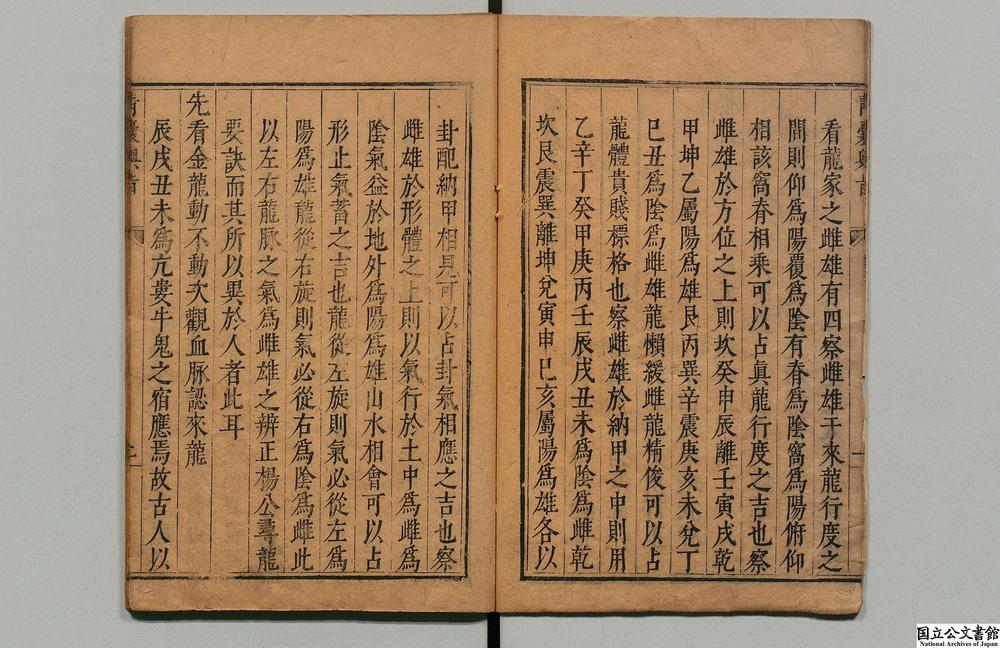 看龍家之雌雄有四察雌雄于來龍行度之
間則仰爲陽覆爲陰有脊爲陰窩爲陽俯仰
相該窩脊相乘可以占眞龍行度之吉也察
雌雄於方位之上則坎癸申辰離壬寅戌乾
甲坤乙屬陽爲雄艮丙巽辛震庚亥未兌丁
巳丑爲陰爲雌雄龍懶緩雌龍精俊可以占
龍體貴賤標格也察雌雄於納甲之中則用
乙辛丁癸甲庚丙壬辰戌丑未爲陰爲雌乾
坎艮震巽離坤兌寅申巳亥屬陽爲雄各以
卦配納甲相見可以占卦氣相應之吉也察
雌雄於形體之上則以氣行於土中爲雌爲
陰氣益於地外爲陽爲雄山水相會可以占
形止氣蓄之吉也龍從左旋則氣必從左爲
陽爲雄龍從右旋則氣必從右爲陰爲雌此
以左右龍脉之氣爲雌雄之辨正楊公尋龍
要訣而其所以異於人者此耳
先看金龍動不動次觀血脉認來龍
辰戌丑未爲亢婁牛鬼之宿應焉故古人以
青囊奧旨
国立公文書館
National Archives of Japan